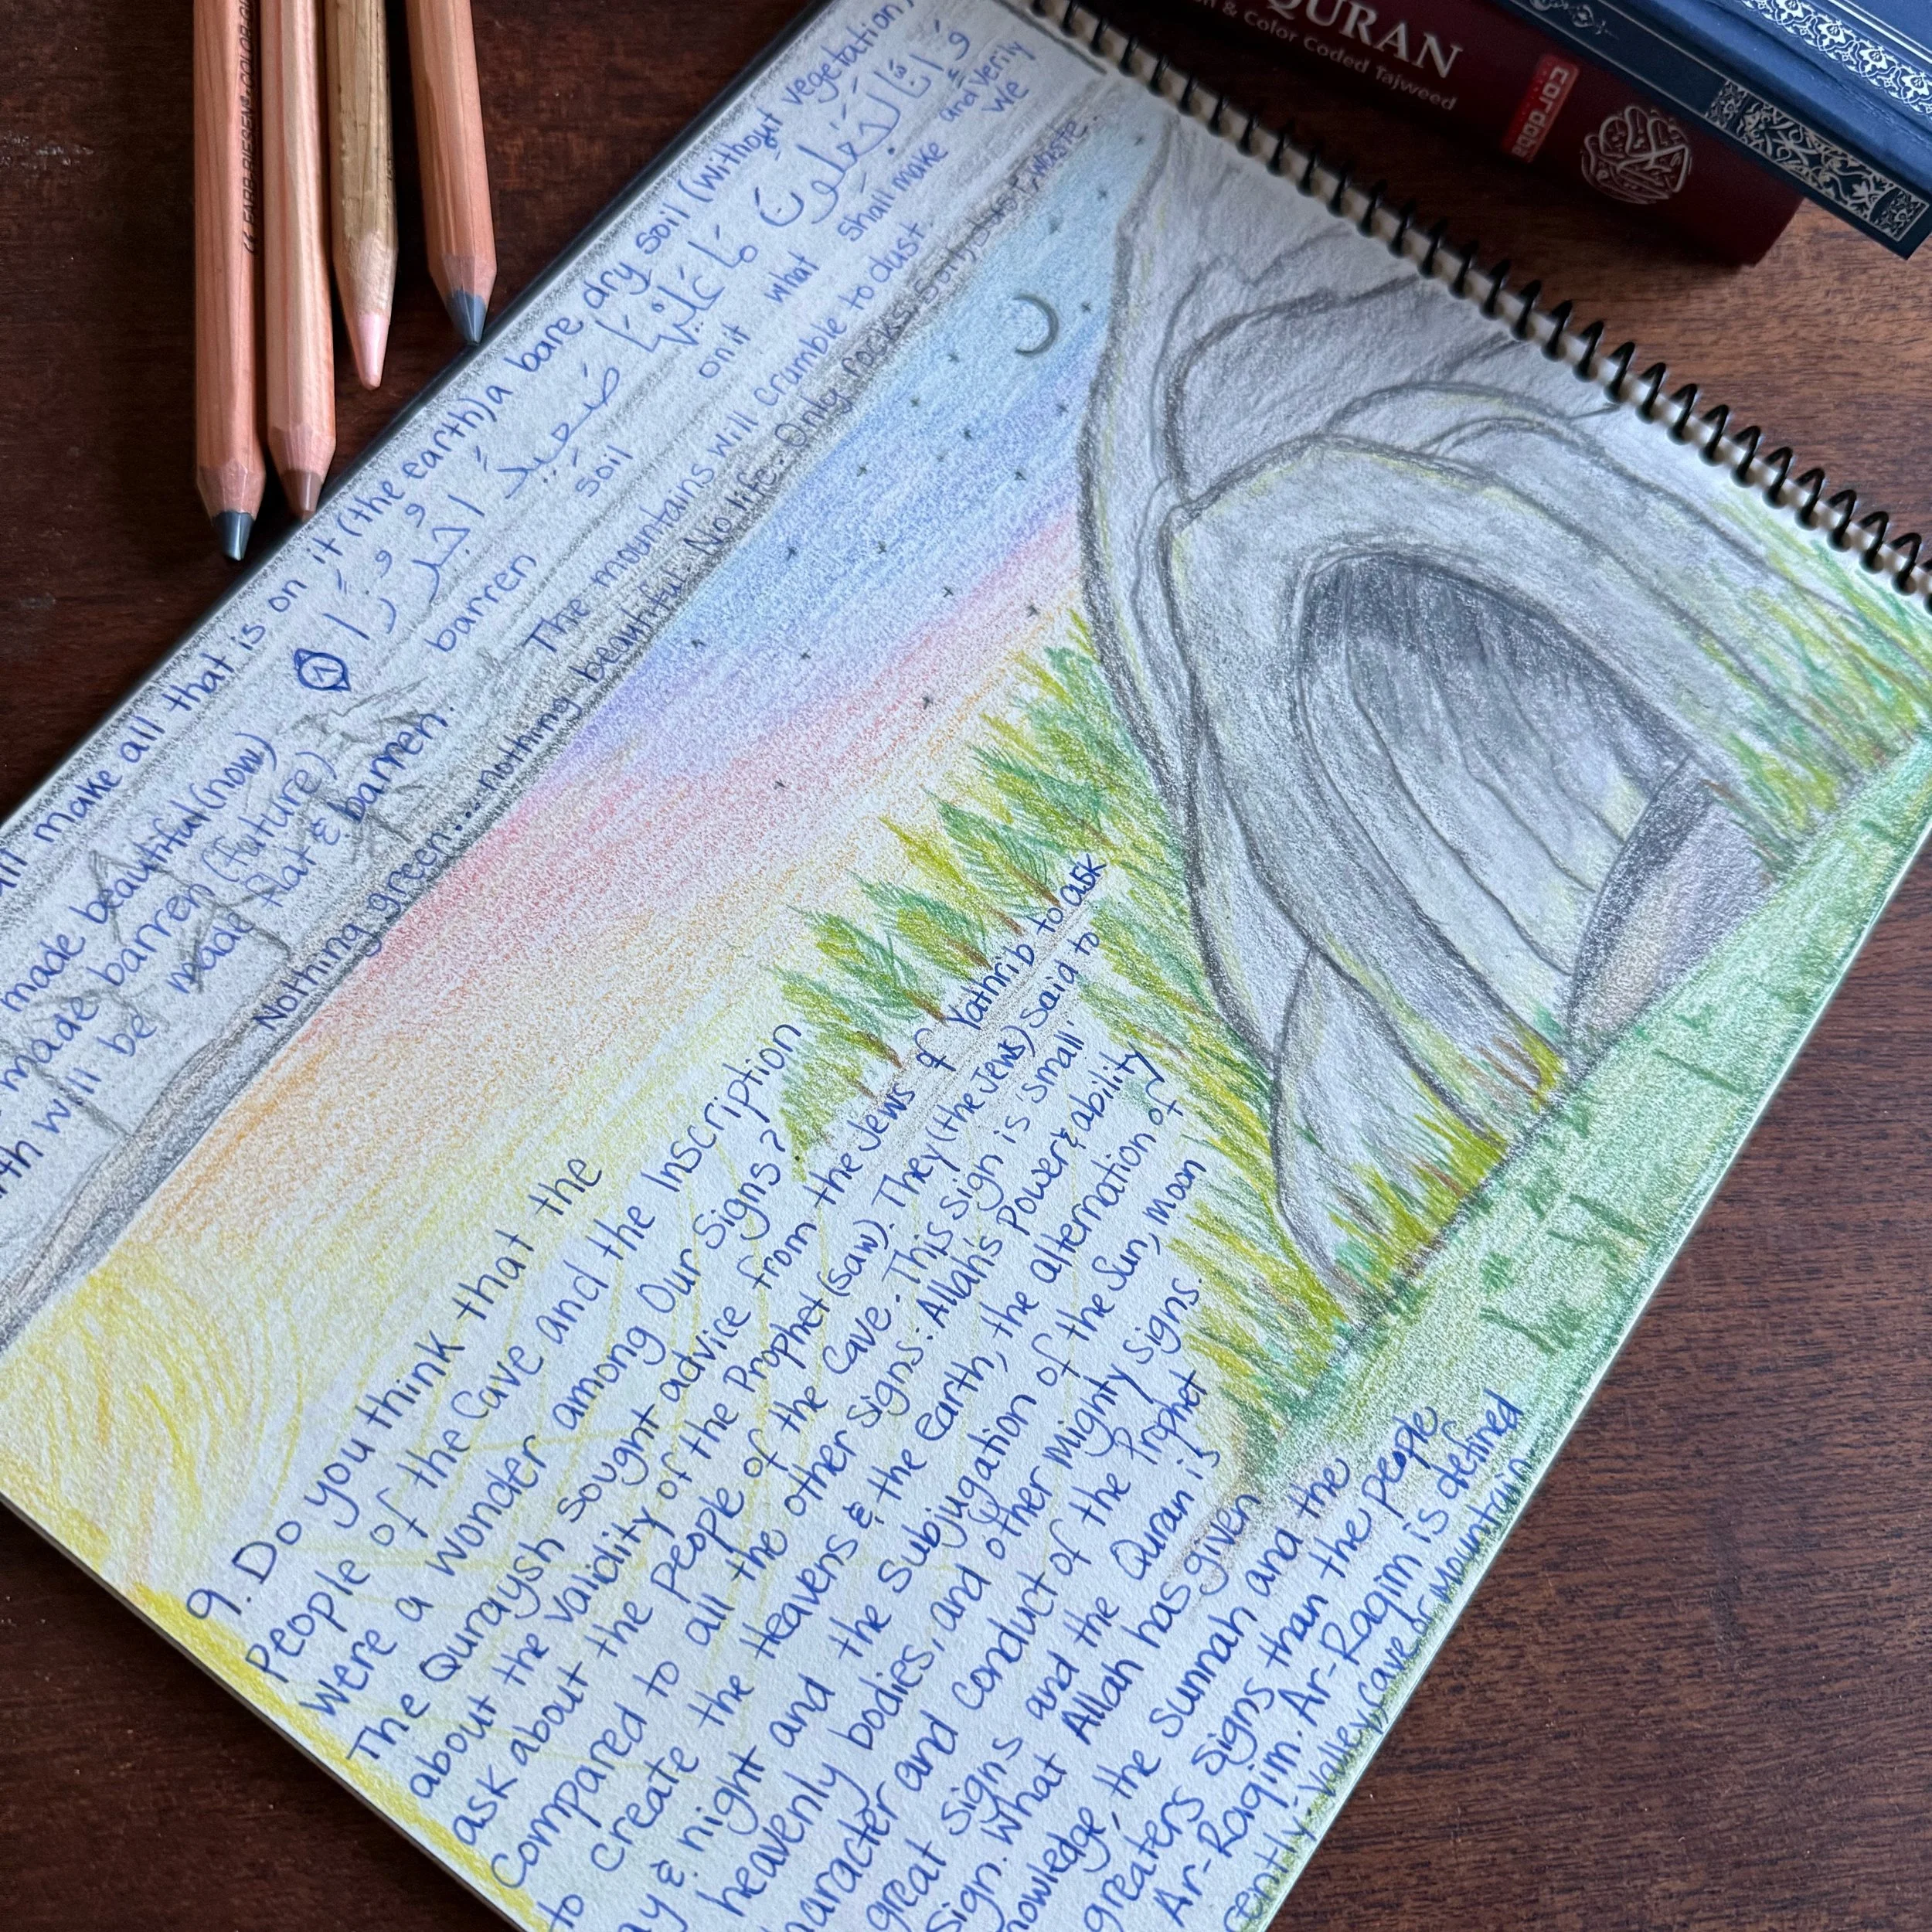 all make all that is on it (the earth) a bare dry soil (without vegetation)
وَإِنَّا لَجَٰعِلُونَ مَا عَلَيْهَا صَعِيدًا جُرُزًا ٨
and verily We shall make what on it soil barren
made beautiful (now)
made barren (future)
will be made flat & barren. The mountains will crumble to dust.
Nothing green... nothing beautiful. No life. Only rocks.
9. Do you think that the
People of the Cave and the Inscription
Were a wonder among Our Signs?
The Quraysh sought advice from the Jews of Yathrib to ask
about the validity of the Prophet (saw). They (the Jews) said to
ask about the people of the Cave. This sign is 'small'
Compared to all the other signs: Allah's Power & ability
to create the Heavens & the Earth, the alternation of
& night and the subjugation of the Sun, moon
heavenly bodies, and other mighty signs.
character and conduct of the Prophet
great signs and the Quran is
Sign. What Allah has given
knowledge, the Sunnah and the
greaters signs than the people
Ar-Raqim. Ar-Raqim is defined
Valley, Cave or Mountain
QURAN
& Color Coded Tajweed
cordoba
LYRA REMBRANDT